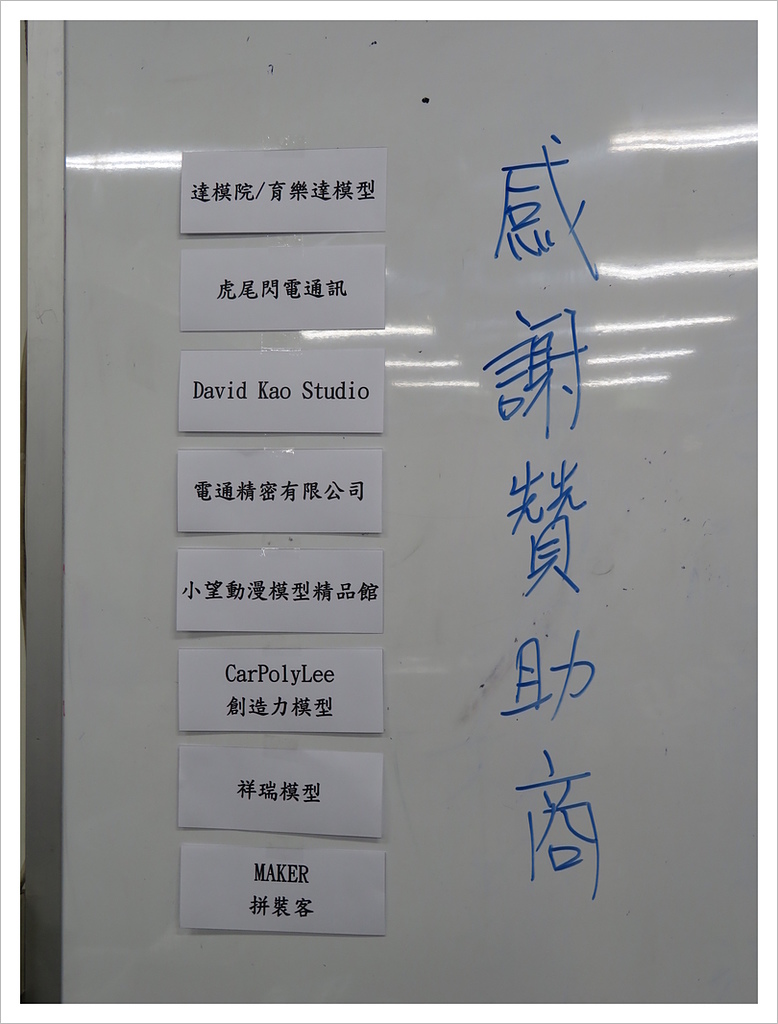 感謝贊助商
達模院/育樂達模型
虎尾閃電通訊
David Kao Studio
電通精密有限公司
小望動漫模型精品館
CarPolyLee
創造力模型
祥瑞模型
MAKER
拼裝客